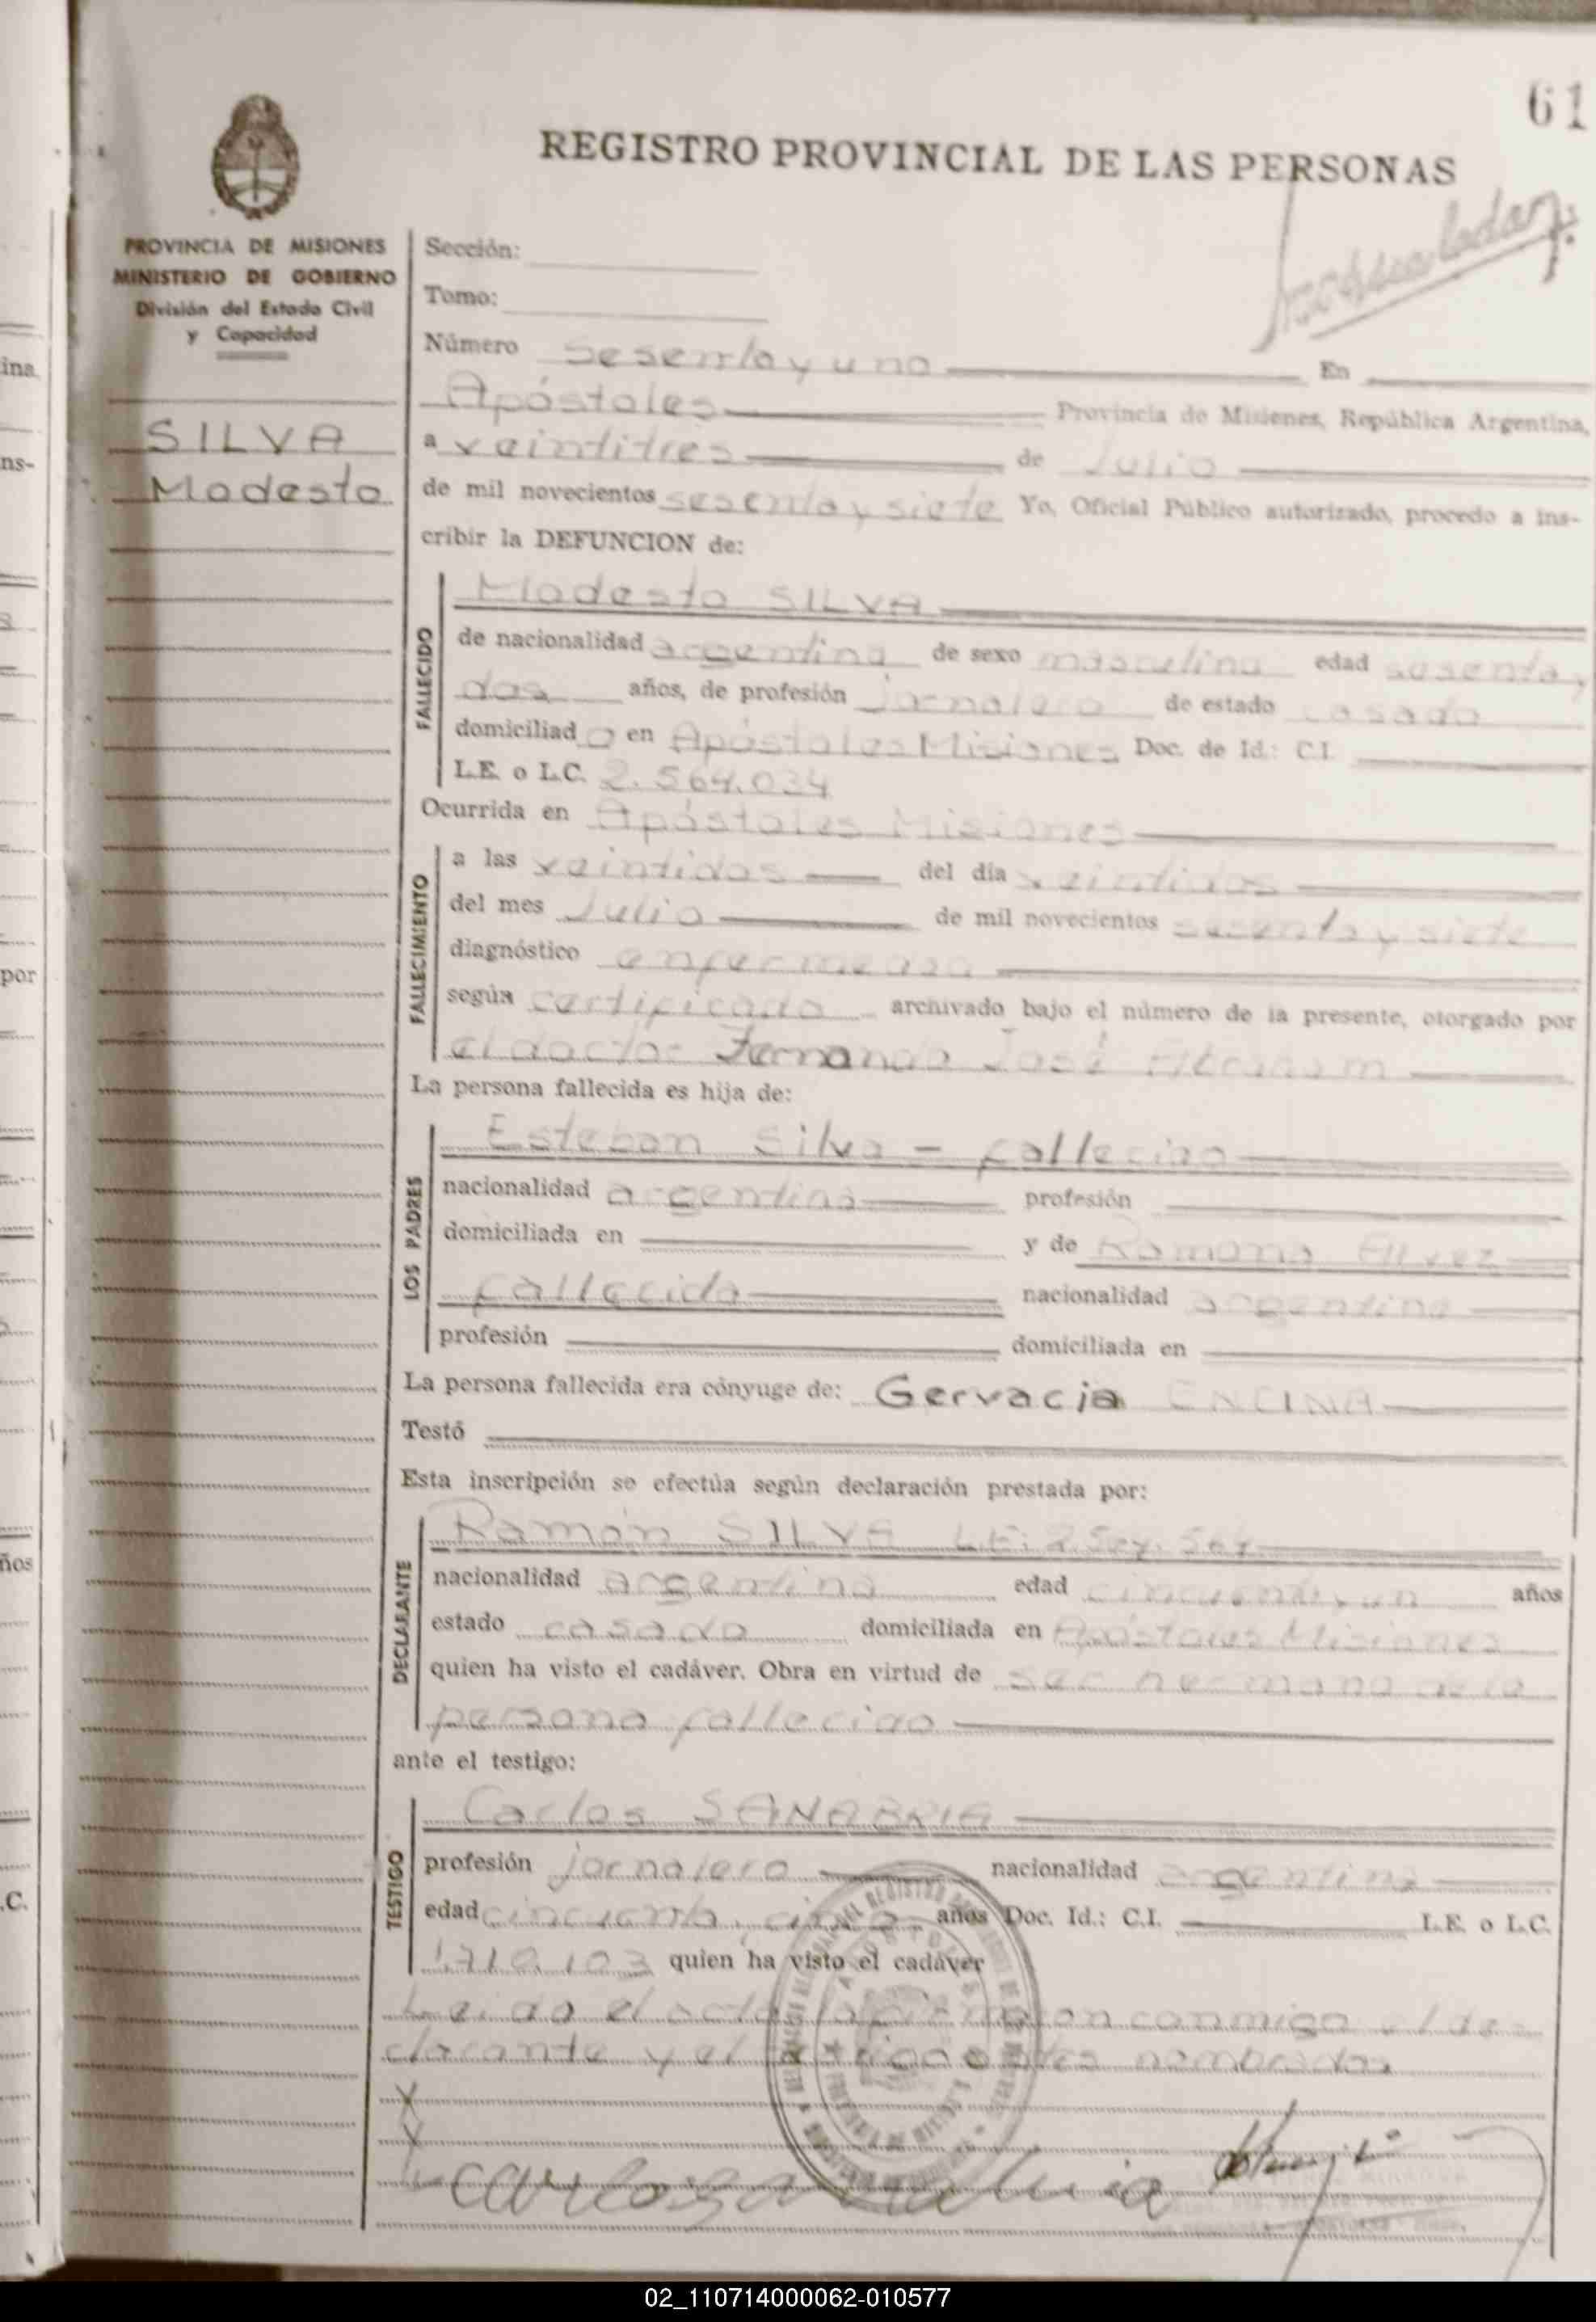 61
REGISTRO PROVINCIAL DE LAS PERSONAS
PROVINCIA DE MISIONES
MINISTERIO DE GOBIERNO
División del Estado Civil
y Capacidad
SILVA
Modesto
Sección:
Tomo:
Número sesenta y uno En
Apóstoles Provincia de Misiones, República Argentina,
a veintitres de Julio
de mil novecientos sesenta y siete Yo, Oficial Público autorizado, procedo a ins-
cribir la DEFUNCION de:
FALLECIDO
Modesto SILVA
de nacionalidad argentina de sexo masculino edad sesenta y
dos años, de profesión jornalero de estado casado
domiciliado en Apóstoles Misiones Doc. de Id.: C.I.
L.E. o L.C. 2.564.034
Ocurrida en Apóstoles Misiones
FALLECIMIENTO
a las veintidos del día veintidos
del mes Julio de mil novecientos sesenta y siete
diagnóstico
según certificado archivado bajo el número de la presente, otorgado por
el doctor Fernando José Abraham
La persona fallecida es hija de:
LOS PADRES
Esteban Silva - fallecido
nacionalidad argentina profesión
domiciliada en y de Ramona Alvez
fallecida nacionalidad argentina
profesión domiciliada en
La persona fallecida era cónyuge de: Gervacia ENCINA
Testó
Esta inscripción se efectúa según declaración prestada por:
DECLARANTE
Ramón SILVA L.E:
nacionalidad argentina edad años
estado casado domiciliada en Apóstoles Misiones
quien ha visto el cadáver. Obra en virtud de ser hermano de la
persona fallecida
ante el testigo:
TESTIGO
Carlos SANABRIA
profesión jornalero nacionalidad argentina
edad cincuenta años Doc. Id.: C.I. L.E. o L.C.
quien ha visto el cadáver
Leida el acta la firman conmigo el de-
clarante y el testigo antes nombrados
02_110714000062-010577